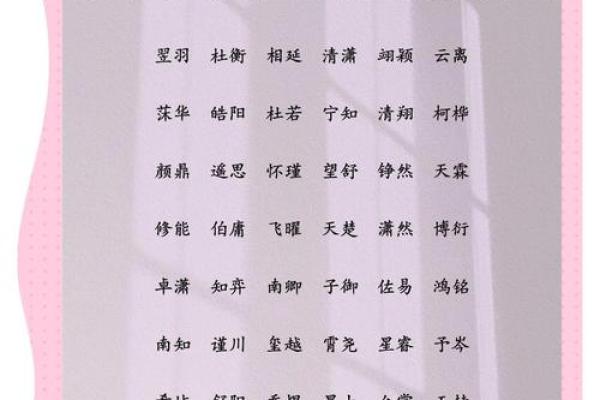 翌羽 杜衡 相延 清潇 翊颖 云离
菋华 皓阳 杜若 宁知 清翔 柯桦
颜鼎 遥思 怀瑾 望舒 铮然 天霖
修能 伯庸 飞曜 天楚 潇然 博衍
卓潇 知弈 南卿 子御 佐易 鸿铭
南知 谨川 玺越 霄尧 星睿 予岑